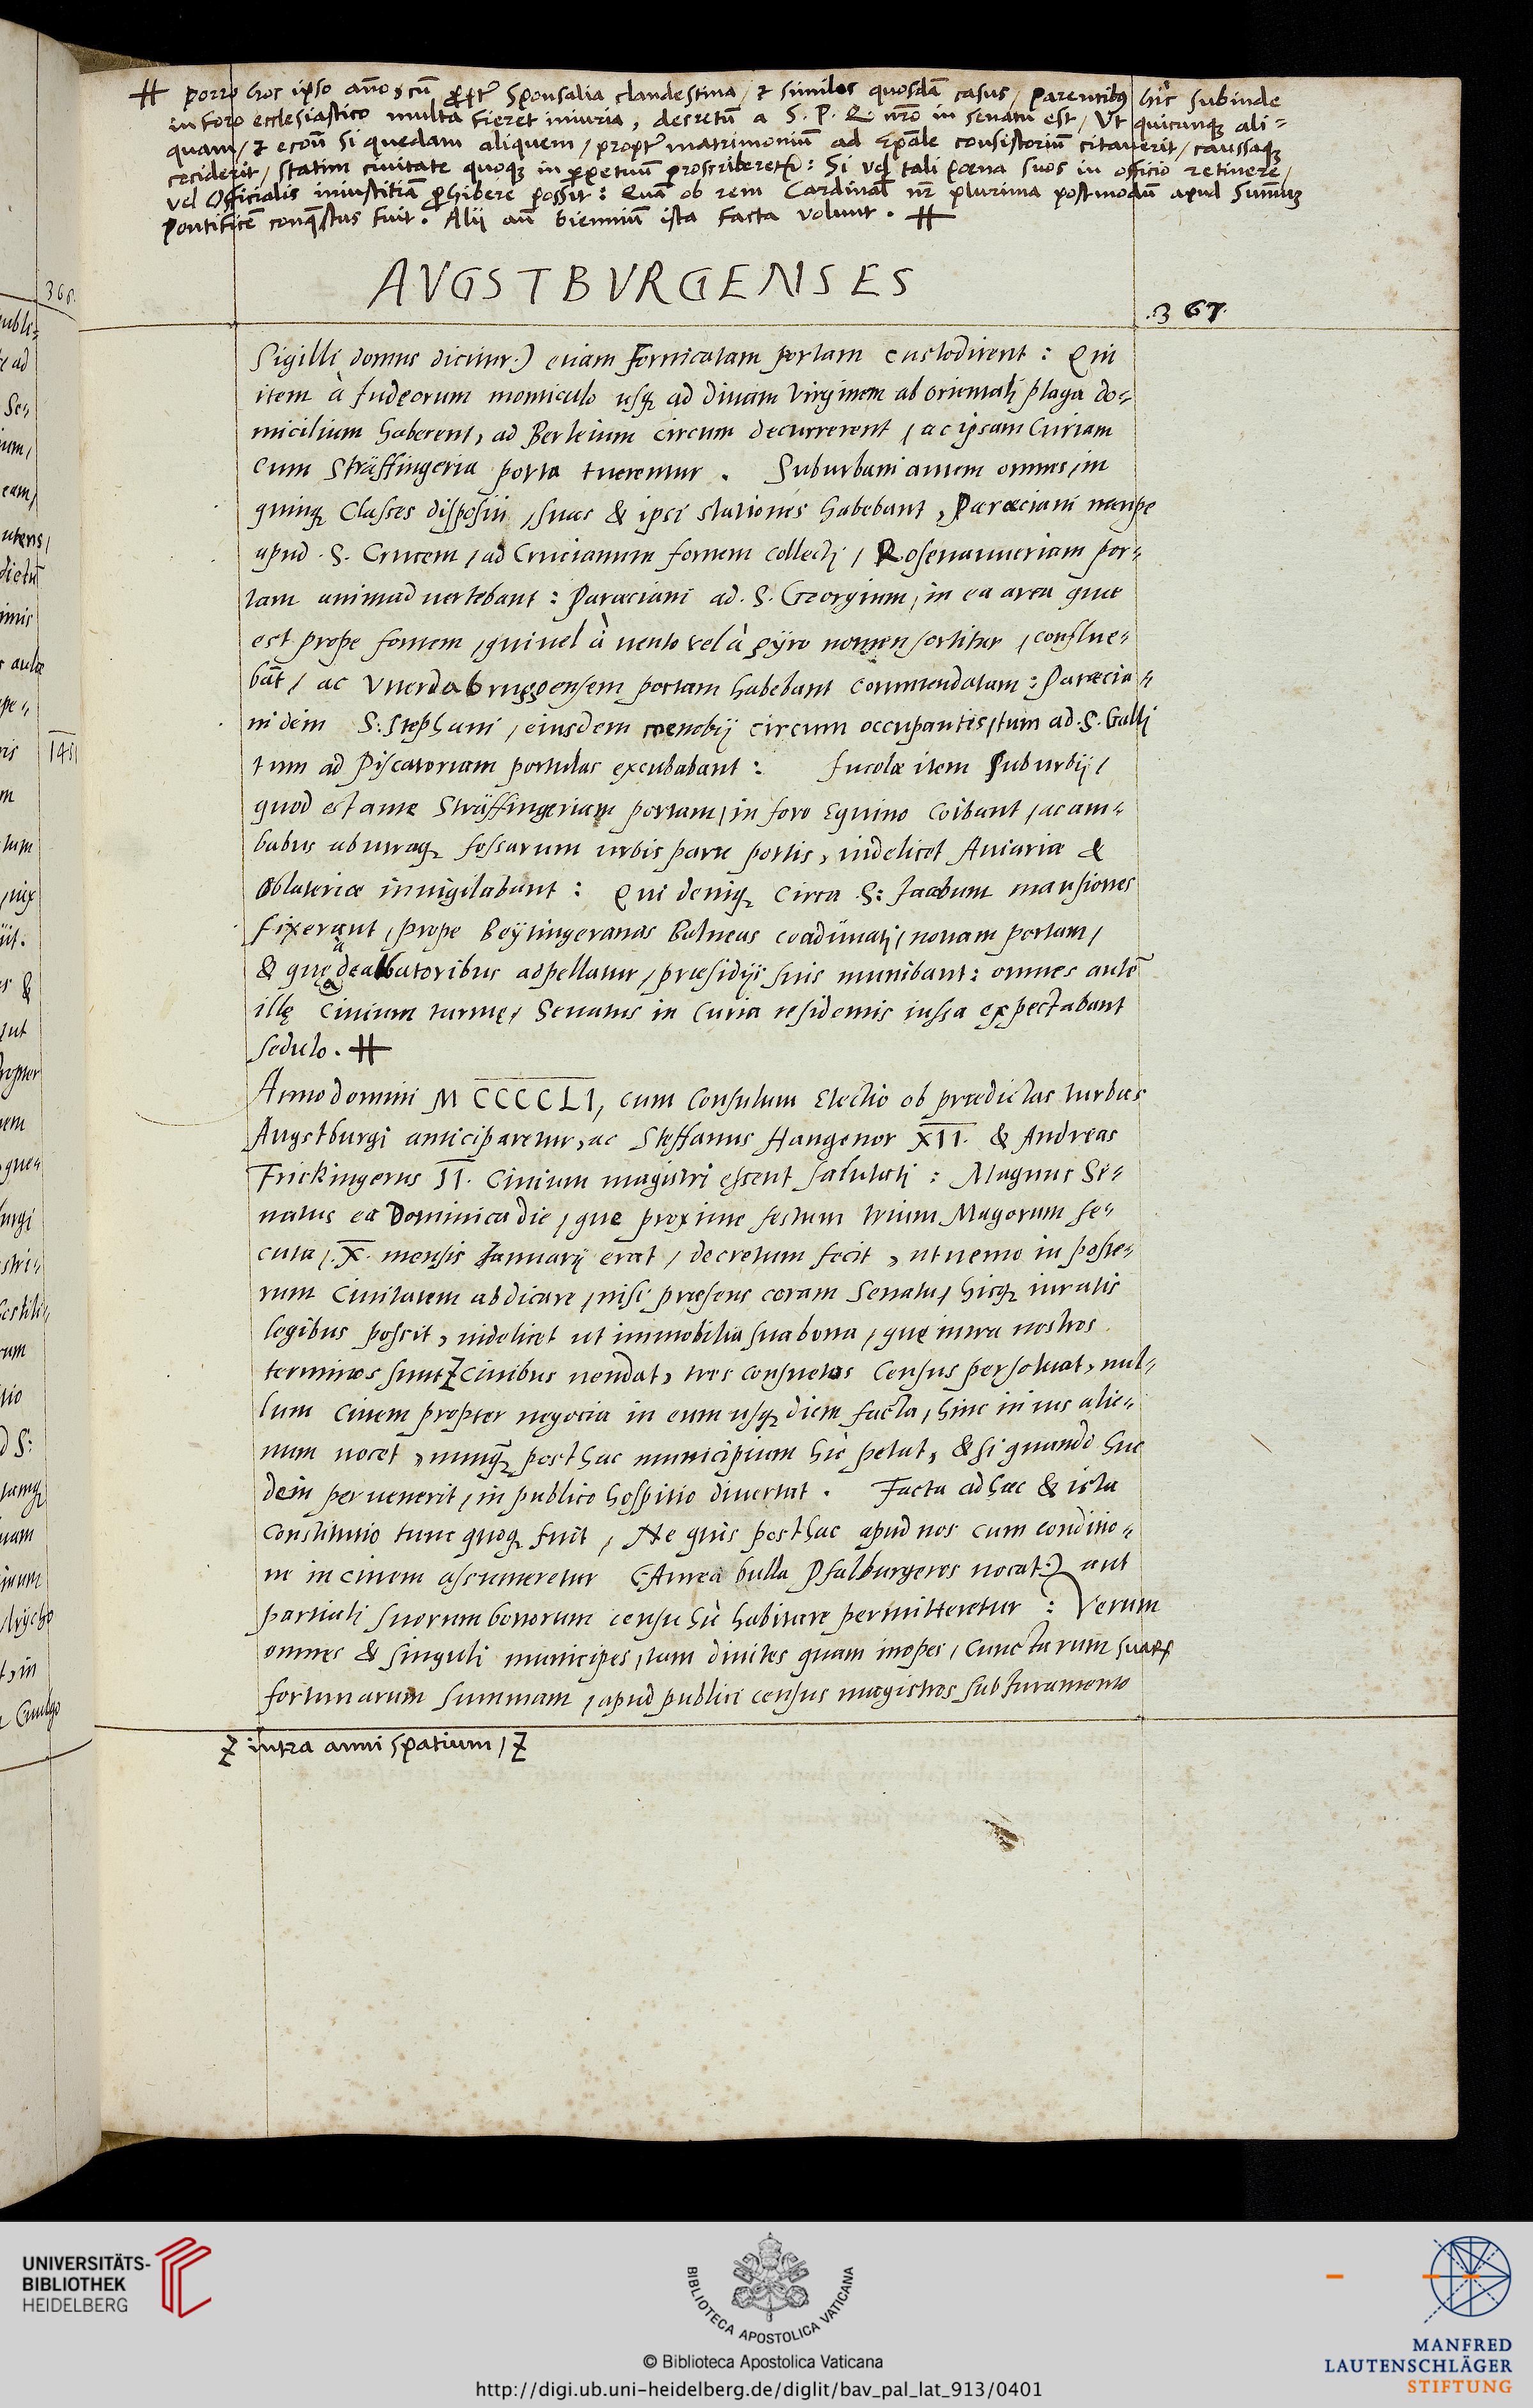 ╫ Porro hoc ipso año, cũ ꝓpt̃ Sponsalia clandestina, & similes quosdã casus, Parentibꝰ hîc subinde
in foro ecclesiastico multa fieret iniuria, decretũ a S. P. Q nr̃o in senatu est, Vt quicunqꝫ ali=
quam, & econ̄ si quedam aliquem, propt̃ matrimoniũ ad Ep̃ale consistoriũ citauerit, caussaqꝫ
ceciderit, statim ciuitate quoqꝫ in ꝑpetuũ proscriberet̃: Si vel tali pœna suos in officio retinere,
vel Officialis iniustitiã ꝓhibere possit: Quã ob rem Cardinal nr̃ plurima postmodũ apud Sum̃ũ
Pontificẽ conq̃stus fuit. Alij añ bienniũ ista facta volunt. ╫
AVGSTBVRGENSES
.367.
Sigilli domus dicitur.) etiam Fornicatam portam custodirent: Qui
item à Iudeorum monticulo usqꝫ ad diuam Virginem ab orientali plaga do=
micilium haberent, ad Berleium circum decurrerent, ac ipsam Curiam
cum Sträffingeria porta tuerentur. Suburbani autem omnes, in
quinqꝫ Classes dispositi, suas & ipsi stationes habebant, Parœciani nempe
apud S. Crucem, ad Crucianum fontem collecti, Rosenauueriam por=
tam animaduertebant: Parœciani ad S. Georgium, in ea area quæ
est prope fontem, qui uel à uento uel à gyro nomen sortitur, conflue=
bãt, ac Vuerdabruggensem portam habebant commendatam: Parœcia=
ni dein S: Stephani, eiusdem cœnobij circum occupantis, tum ad S. Galli
tum ad Piscatoriam portulas excubabant: Incolæ item Suburbij,
quod est ante Sträffingeriam portam, in foro Equino coibant, ac am=
babus ab utraqꝫ fossarum urbis parte portis, uidelicet Auiariæ &
Oblateriæ inuigilabant: Qui deniqꝫ circa S: Iacobum mansiones
fixerant, prope Beytingeranas Balneas coadunati, nouam portam,
& quę a dealbatoribus adpellatur, præsidijs suis munibant: omnes autẽ
illę Ciuium turmę, Senatus in Curia residentis iussa expectabant
sedulo. ╫
Anno domini MCCCCLI, cum Consulum Electio ob prædictas turbas
Augstburgi anticiparetur, ac Steffanus Hangenor XII. & Andreas
Frickingerus II. Ciuium magistri essent salutati: Magnus Se=
natus ea Dominica die, que proxime festum trium Magorum se=
cuta, .X. mensis Ianuarij erat, decretum fecit, ut nemo in poste=
rum Ciuitatem abdicare, nisi præsens coram Senatu, hisqꝫ iuratis
legibus possit, uidelicet ut immobilia sua bona, quę intra nostros
terminos sunt Ɀ ciuibus uendat, tres consuetos Census persoluat, nul=
lum ciuem propter negocia in eum usqꝫ diem facta, hinc in ius alie=
num uocet, nunq̃ posthac municipium hîc petat, & si quando huc
dein peruenerit, in publico hospitio diuertat. Facta adhæc & ista
Constitutio tunc quoqꝫ fuit, Ne quis posthac apud nos cum conditio=
ne in ciuem assumeretur (Aurea bulla Pfalburgeros uocat:) aut
partiali suorum bonorum censu hîc habitare permitteretur: Verum
omnes & singuli municipes, tam diuites quam inopes, Cunctarum suarꝝ
fortunarum summam, apud publici census magistros sub Iuramento
Ɀ intra anni spatium, Ɀ
366.
1451
UNIVERSITÄTS-
BIBLIOTHEK
HEIDELBERG
BIBLIOTECA APOSTOLICA VATICANA
© Biblioteca Apostolica Vaticana
http://digi.ub.uni-heidelberg.de/diglit/bav_pal_lat_913/0401
MANFRED
LAUTENSCHLÄGER
STIFTUNG